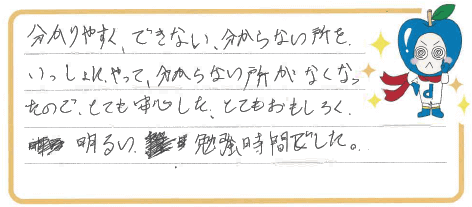 分かりやすく、できない、分からない所を
いっしょに、やって、分からない所がなくなっ
たので、とても安心した、とてもおもしろく、
明るい、勉強時間でした。
d